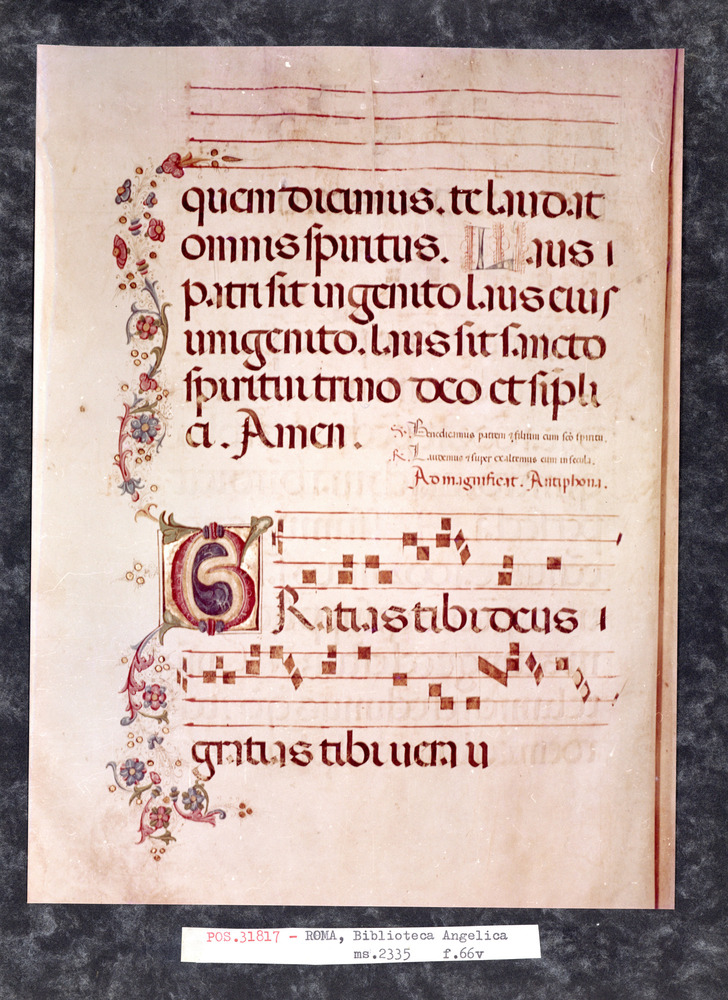 quem dicimus. te laudat
omnis spiritus. Laus i
patri sit ingenito laus eius
unigenito. laus sit sancto
spiritui trino deo et simpli
ci. Amen.
V. Benedicamus patrem ⁊ filium cum sco spiritu.
R. Laudemus ⁊ super exaltemus eum in secula.
Ad magnificat. Antiphona.
GRatias tibi deus
gratias tibi uera u
POS.31817 - ROMA, Biblioteca Angelica
ms.2335 f.66v